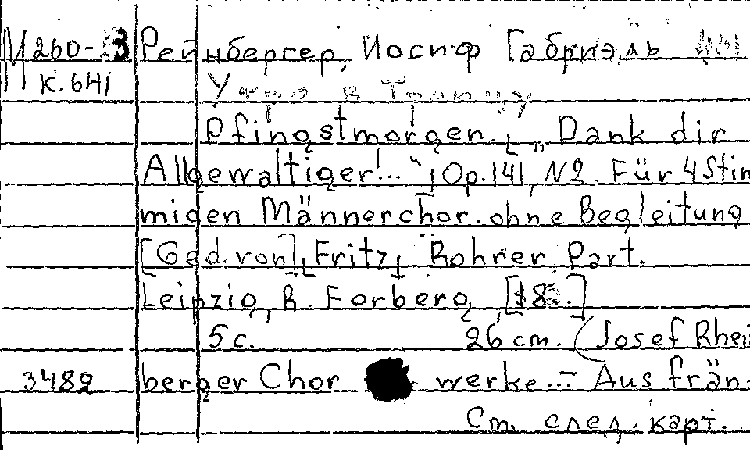 М260-3 Рейнбергер, Иосиф Габриэль
к.641 Утро в Троицу
Pfingstmorgen. [„Dank dir
Allgewaltiger!..."] Op.141, N2. Für 4 Stim
migen Männerchor. ohne Begleitung
[Ged. von] [Fritz] Rohrer. Part.
Leipzig, R. Forberg, [18 .]
5 с. 26 cm. (Josef Rhei
3482 berger Chor werke.- Aus frän-
См. след. карт.